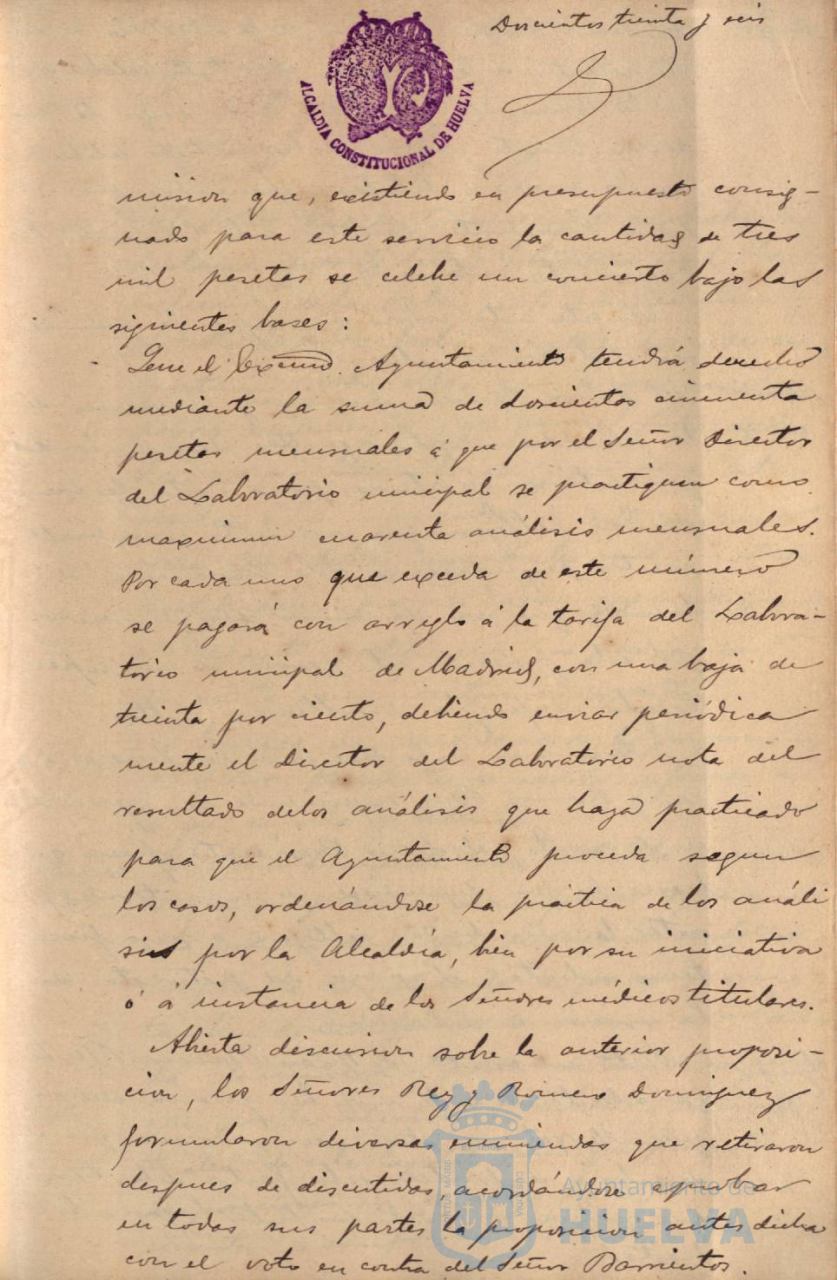 Doscientos treinta y seis
ALCALDIA CONSTITUCIONAL DE HUELVA
mision que, existiendo en presupuesto consig-
nado para este servicio la cantidad de tres
mil pesetas se celebe un concierto bajo las
siguientes bases:
Que el Excmo. Ayuntamiento tendrá derecho
mediante la suma de doscientos cincuenta
pesetas mensuales á que por el Señor Director
del Laboratorio municipal se practiquen como
maximum cuarenta análisis mensuales.
Por cada uno que exceda de este número
se pagará con arreglo á la tarifa del Labora-
torio municipal de Madrid, con una baja de
treinta por ciento, debiendo enviar periódica
mente el Director del Laboratorio nota del
resultado delos análisis que haya practicado
para que el Ayuntamiento proceda segun
los casos, ordenándose la práctica de los análi
sis por la Alcaldía, bien por su iniciativa
ó á instancia de los Señores médicos titulares.
Abierta discusion sobre la anterior proposi-
cion, los Señores Rey y Romero Dominguez
formularon diversas enmiendas que retiraron
despues de discutidas, acordándose aprobar
en todas sus partes la proposicion antes dicha
con el voto en contra del Señor Barrientos.
Ayuntamiento de
HUELVA